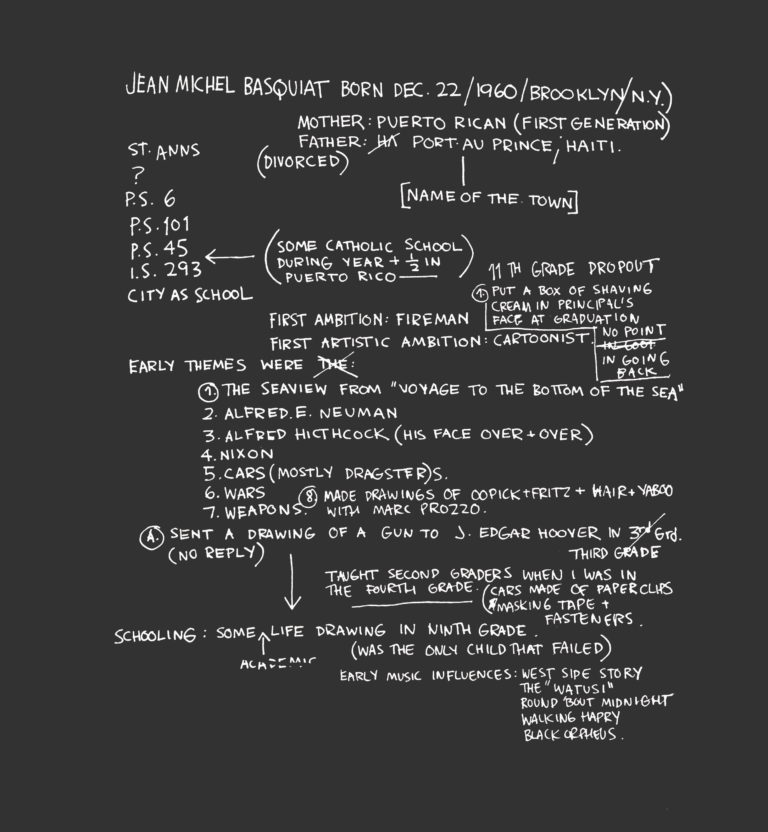 JEAN MICHEL BASQUIAT BORN DEC. 22/1960/BROOKLYN/N.Y.)
MOTHER: PUERTO RICAN (FIRST GENERATION)
FATHER: PORT-AU PRINCE, HAITI.
(DIVORCED)
[NAME OF THE TOWN]
ST. ANNS
?
P.S. 6
P.S. 101
P.S. 45
I.S. 293
CITY AS SCHOOL
(SOME CATHOLIC SCHOOL
DURING YEAR + 1/2 IN
PUERTO RICO)
11 TH GRADE DROPOUT
1. PUT A BOX OF SHAVING
CREAM IN PRINCIPAL'S
FACE AT GRADUATION
NO POINT
IN GOING
BACK
FIRST AMBITION: FIREMAN
FIRST ARTISTIC AMBITION: CARTOONIST.
EARLY THEMES WERE THE:
1. THE SEAVIEW FROM "VOYAGE TO THE BOTTOM OF THE SEA"
2. ALFRED. E. NEUMAN
3. ALFRED HICTHCOCK (HIS FACE OVER + OVER)
4. NIXON
5. CARS (MOSTLY DRAGSTER)S.
6. WARS
7. WEAPONS.
8 MADE DRAWINGS OF OOPICK + FRITZ + HAIR + YABOO
WITH MARC PROZZO.
A. SENT A DRAWING OF A GUN TO J. EDGAR HOOVER IN 3rd Grd.
(NO REPLY)
THIRD GRADE
TAUGHT SECOND GRADERS WHEN I WAS IN
THE FOURTH GRADE. (CARS MADE OF PAPERCLIPS
MASKING TAPE +
FASTENERS.
SCHOOLING: SOME LIFE DRAWING IN NINTH GRADE.
ACADEMIC
(WAS THE ONLY CHILD THAT FAILED)
EARLY MUSIC INFLUENCES: WEST SIDE STORY
THE "WATUSI"
ROUND 'BOUT MIDNIGHT
WALKING HAPPY
BLACK ORPHEUS.